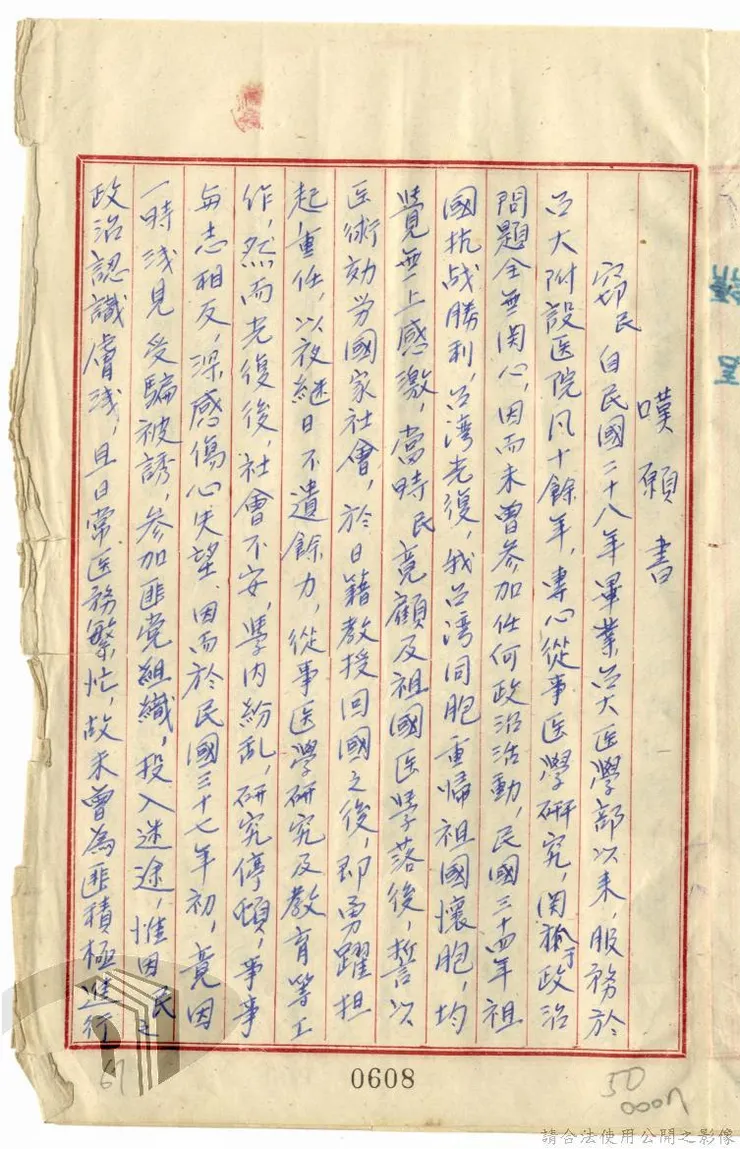 嘆願書
窃民自民國二十八年畢業台大医學部以来,服務於
台大附設医院凡十餘年,專心從事医學研究,関於于政治
問題全無関心,因而未曽参加任何政治活動,民國三十四年祖
國抗战勝利,台湾光復,我台湾同胞重帰祖國懐胞,均
覺無上感激,當時民竟顧及祖國医学落後,誓以
医術効労國家社會,於日籍教授回國之後,即勇躍担
起重任,以夜継日不遺餘力,從事医學研究及教育等工
作,然而光復後,社會不安,學内紛乱,研究停頓,事事
与志相反,深感傷心失望.因而於民國三十七年初,竟因
一時浅見受騙被誘,参加匪党組織,投入迷途,惟因民之
政治認識膚浅,且日常医務繁忙,故未曽為匪積極進行
0608
61
50
請合法使用公開之影像